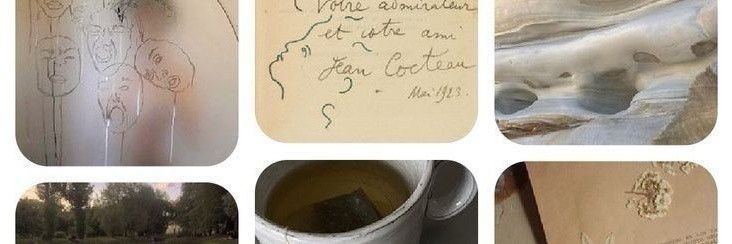 Votre admirateur
et votre ami
Jean Cocteau
Mai 1923.